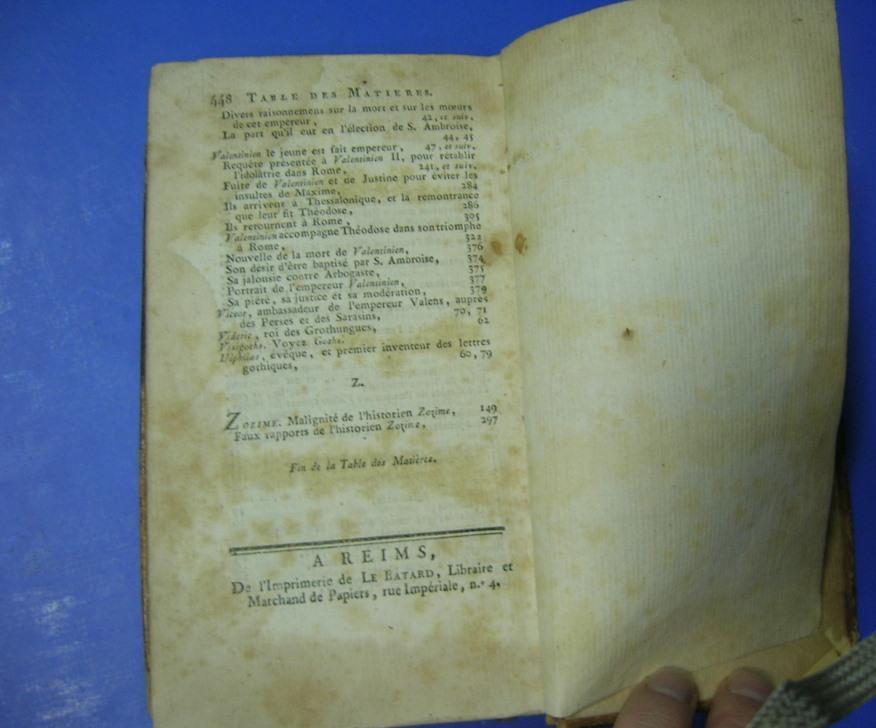 448 TABLE DES MATIERES.
Divers raisonnemens sur la mort et sur les mœurs
de cet empereur, 42, et suiv.
La part qu'il eut en l'élection de S. Ambroise,
44, 45
Valentinien le jeune est fait empereur, 47, et suiv.
Requête présentée à Valentinien II, pour rétablir
l'idolâtrie dans Rome, 241, et suiv.
Fuite de Valentinien et de Justine pour éviter les
insultes de Maxime, 284
Ils arrivent à Thessalonique, et la remontrance
que leur fit Théodose, 286
Ils retournent à Rome, 305
Valentinien accompagne Théodose dans son triomphe
à Rome, 322
Nouvelle de la mort de Valentinien, 376
Son désir d'être baptisé par S. Ambroise, 374
Sa jalousie contre Arbogaste, 375
Portrait de l'empereur Valentinien, 377
Sa piété, sa justice et sa modération, 379
Victor, ambassadeur de l'empereur Valens, auprès
des Perses et des Sarasins, 70, 71
Videric, roi des Grothungues, 62
Visigoths. Voyez Goths.
Ulphilas, évêque, et premier inventeur des lettres
gothiques, 60, 79
Z.
ZOZIME. Malignité de l'historien Zozime, 149
Faux rapports de l'historien Zozime, 297
Fin de la Table des Matières.
A REIMS,
De l'Imprimerie de LE BATARD, Libraire et
Marchand de Papiers, rue Impériale, n.° 4.